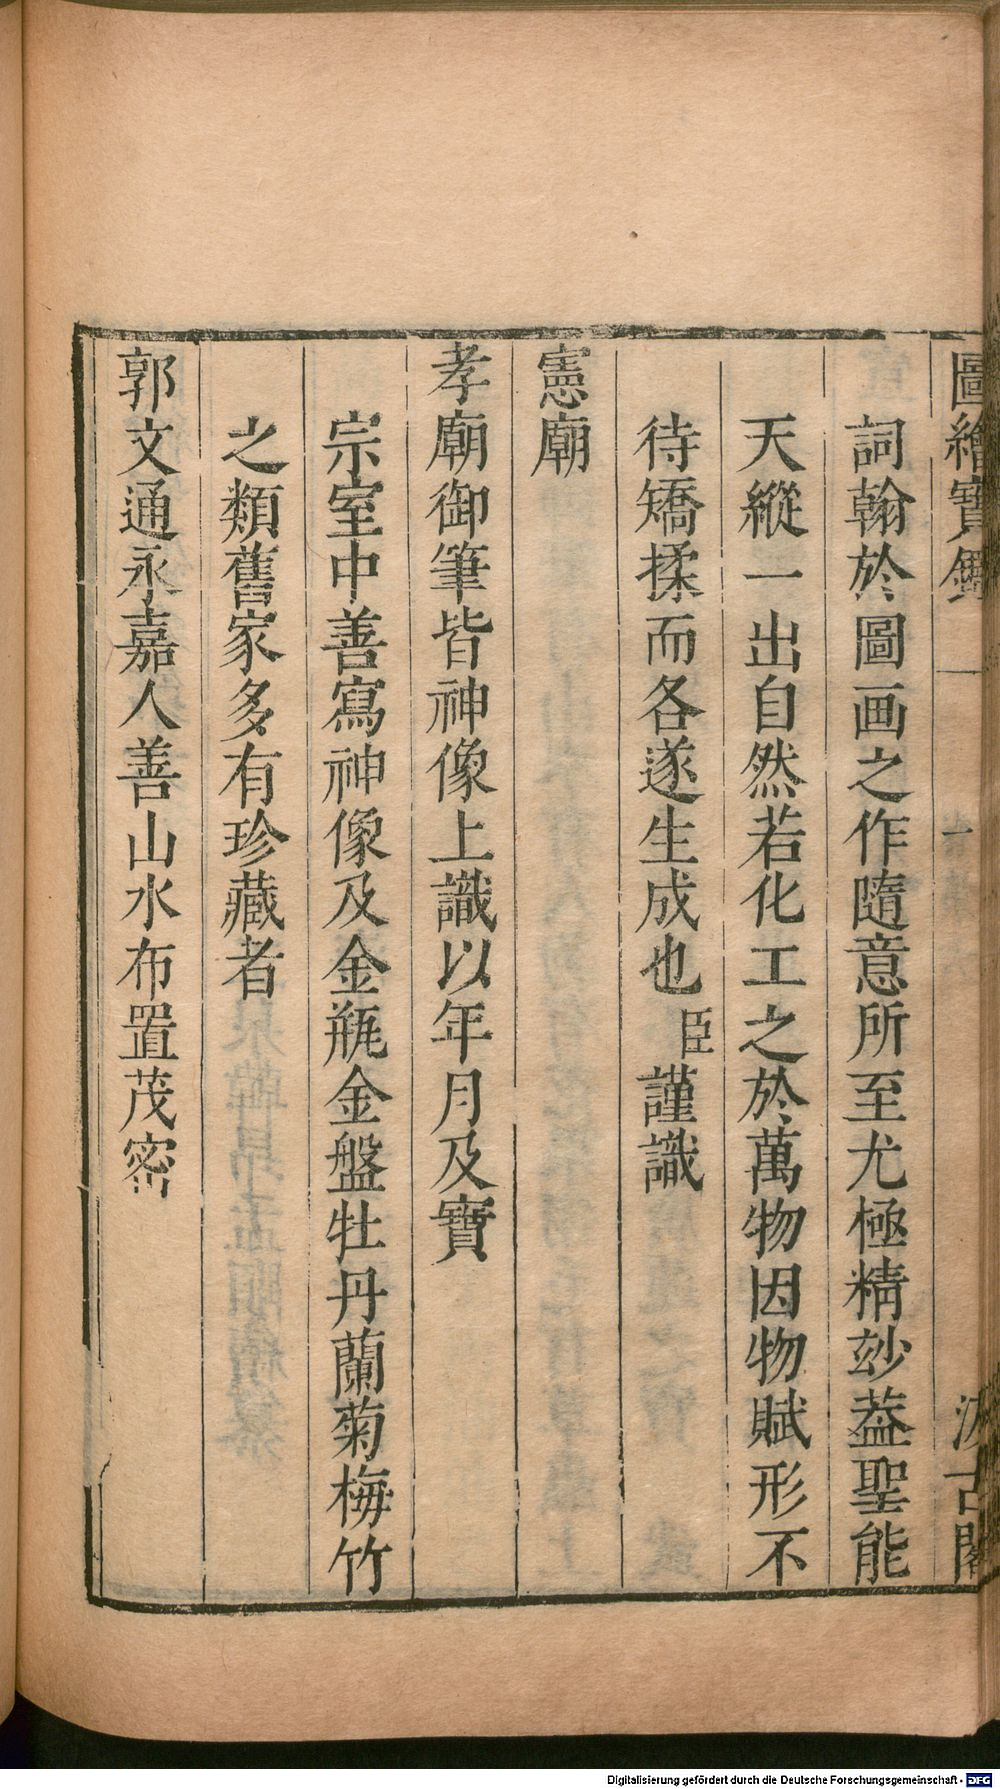 圖繪寶鑑 一 汲古閣
詞翰於圖画之作隨意所至尤極精玅葢聖能
天縱一出自然若化工之於萬物因物賦形不
待矯揉而各遂生成也臣謹識
憲廟
孝廟御筆皆神像上識以年月及寶
宗室中善寫神像及金瓶金盤牡丹蘭菊梅竹
之類舊家多有珍藏者
郭文通永嘉人善山水布置茂密
Digitalisierung gefördert durch die Deutsche Forschungsgemeinschaft - DFG